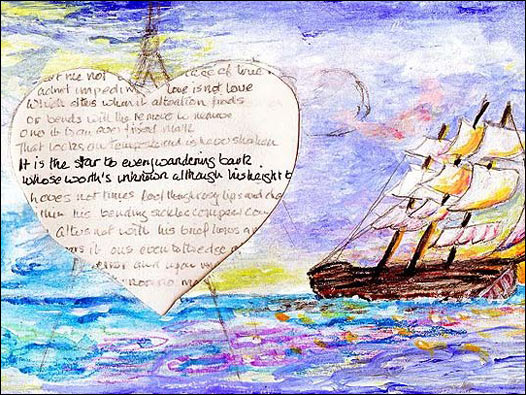 let me not
admit impedim love is not love
Which alters when it alteration finds
Or bends with the remove to remove
one it is an ever fixed mark
That looks on tempests and is never shaken
It is the star to every wandering bark.
whose worth's unknown although his height t
loves not times fool though rosy lips and che
thin his bending sickles compass com
alters not with his brief hours a
it out even to the edge o
error and upon